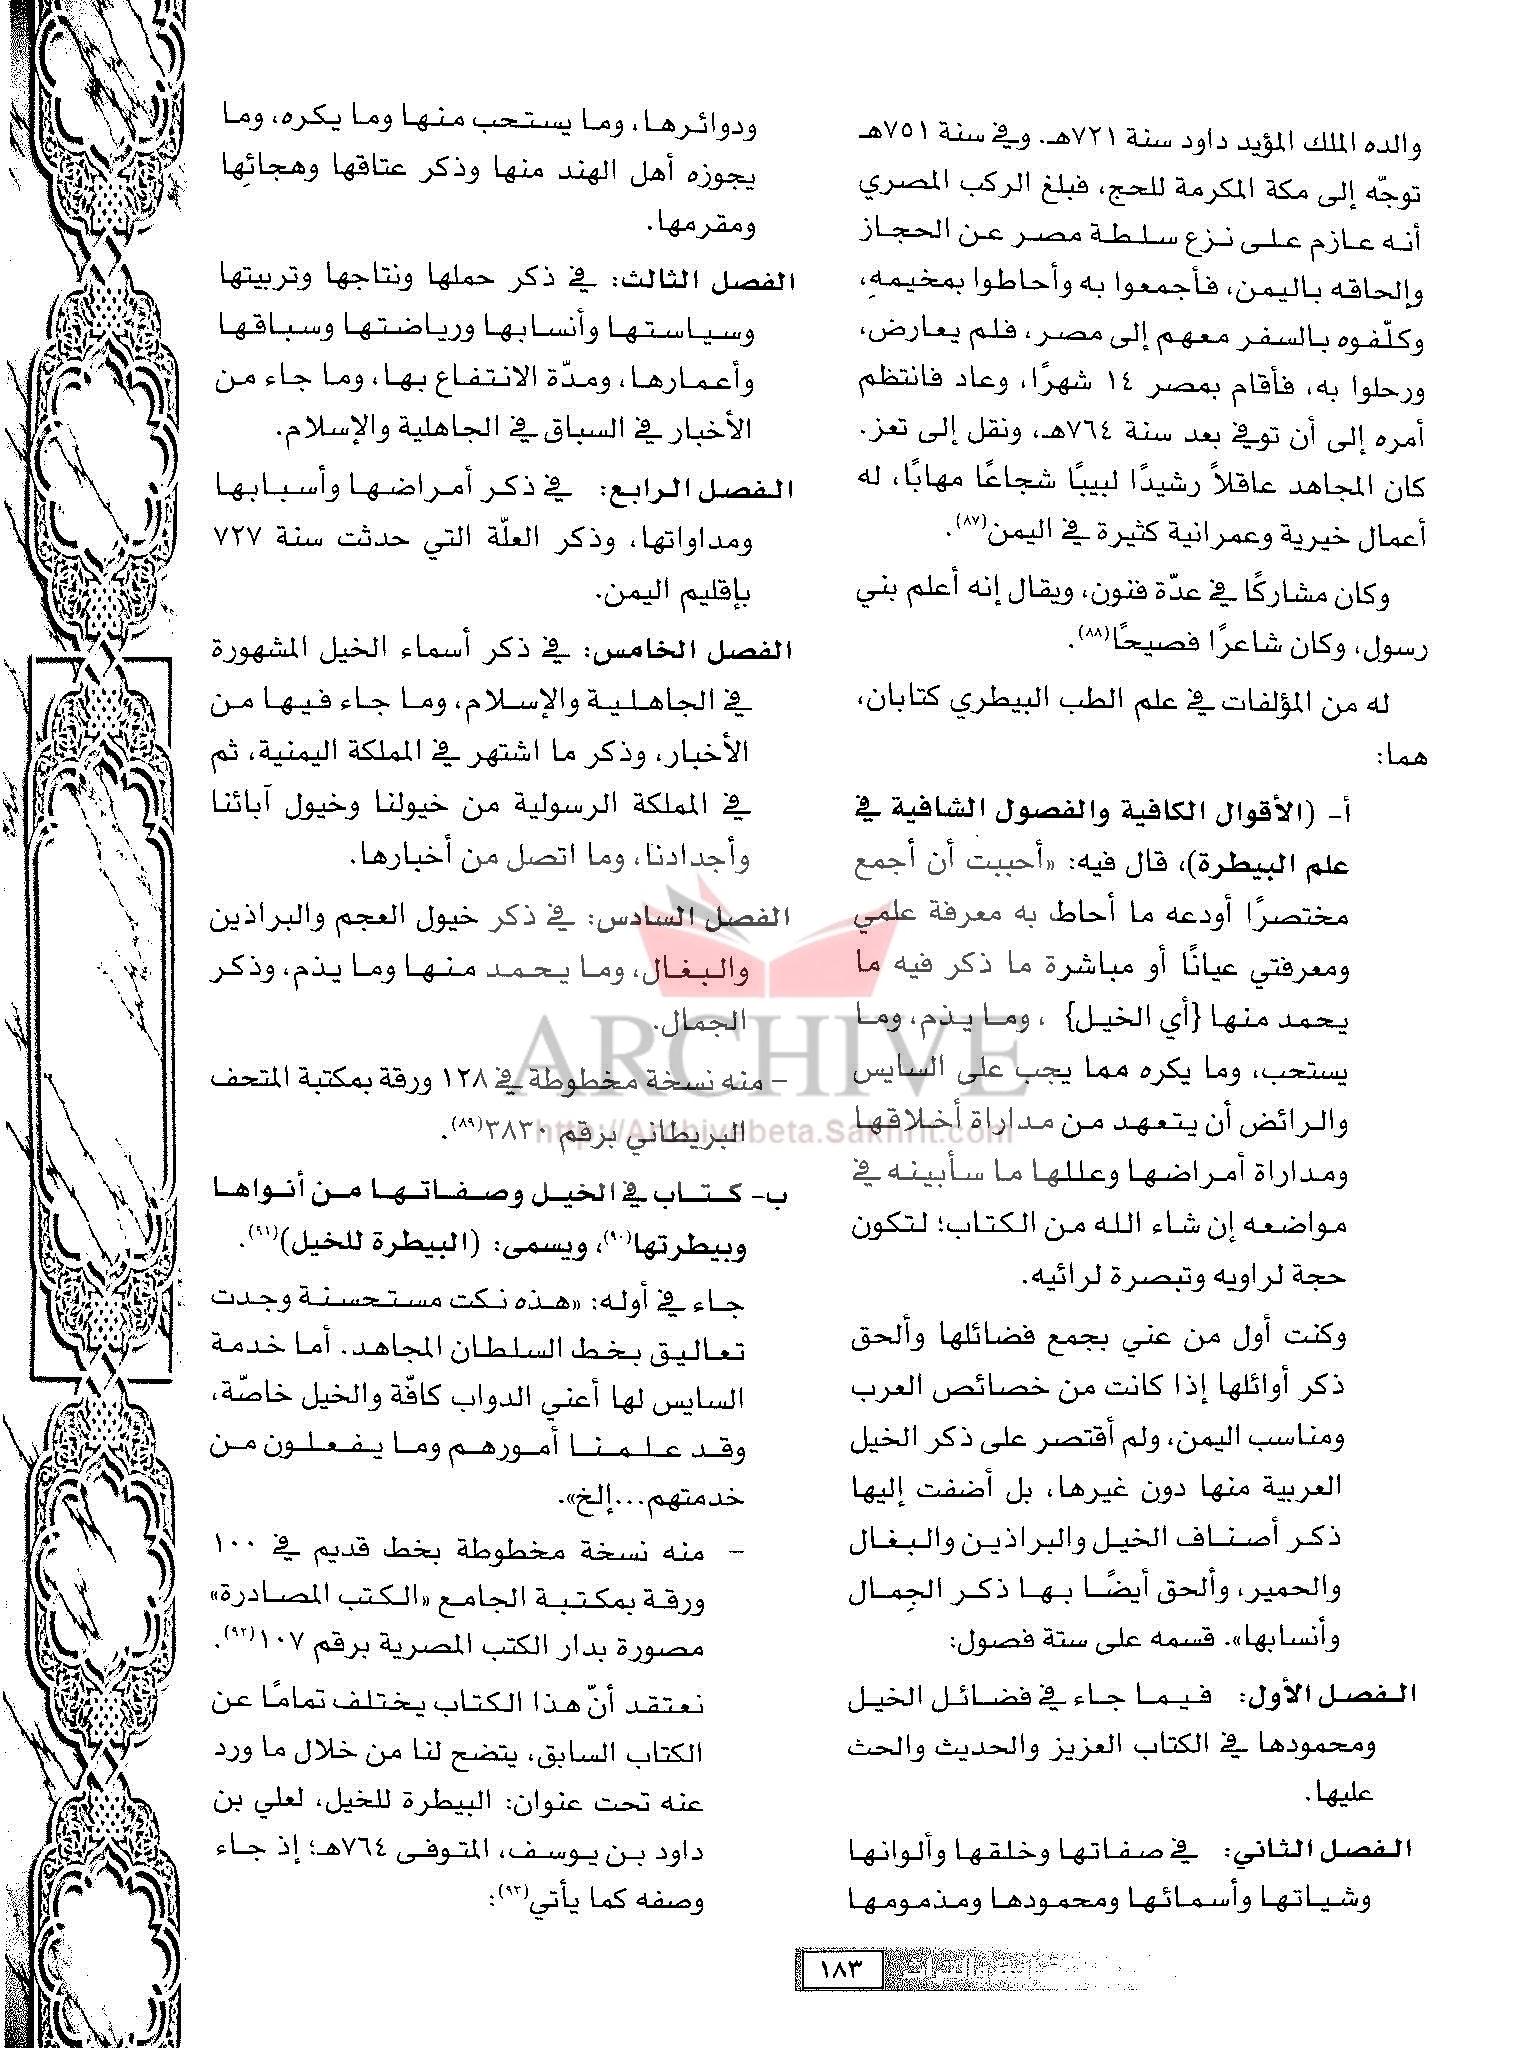 والده الملك المؤيد داود سنة ٧٢١هـ. وفي سنة ٧٥١هـ
توجّه إلى مكة المكرمة للحج، فبلغ الركب المصري
أنه عازم على نزع سلطة مصر عن الحجاز
وإلحاقه باليمن، فأجمعوا به وأحاطوا بمخيمهِ،
وكلّفوه بالسفر معهم إلى مصر، فلم يعارض،
ورحلوا به، فأقام بمصر ١٤ شهرًا، وعاد فانتظم
أمره إلى أن توفي بعد سنة ٧٦٤هـ، ونقل إلى تعز.
كان المجاهد عاقلاً رشيدًا لبيبًا شجاعًا مهابًا، له
أعمال خيرية وعمرانية كثيرة في اليمن(٨٧).
وكان مشاركًا في عدّة فنون، ويقال إنه أعلم بني
رسول، وكان شاعرًا فصيحًا(٨٨).
له من المؤلفات في علم الطب البيطري كتابان،
هما:
أ- (الأقوال الكافية والفصول الشافية في
علم البيطرة)، قال فيه: «أحببت أن أجمع
مختصرًا أودعه ما أحاط به معرفة علمي
ومعرفتي عيانًا أو مباشرة ما ذكر فيه ما
يحمد منها {أي الخيل} ، وما يذم، وما
يستحب، وما يكره مما يجب على السايس
والرائض أن يتعهد من مداراة أخلاقها
ومداراة أمراضها وعللها ما سأبينه في
مواضعه إن شاء الله من الكتاب؛ لتكون
حجة لراويه وتبصرة لرائيه.
وكنت أول من عني بجمع فضائلها وألحق
ذكر أوائلها إذا كانت من خصائص العرب
ومناسب اليمن، ولم أقتصر على ذكر الخيل
العربية منها دون غيرها، بل أضفت إليها
ذكر أصناف الخيل والبراذين والبغال
والحمير، وألحق أيضًا بها ذكر الجِمال
وأنسابها». قسمه على ستة فصول:
الفصل الأول: فيما جاء في فضائل الخيل
ومحمودها في الكتاب العزيز والحديث والحث
عليها.
الفصل الثاني: في صفاتها وخلقها وألوانها
وشياتها وأسمائها ومحمودها ومذمومها
ودوائرها، وما يستحب منها وما يكره، وما
يجوزه أهل الهند منها وذكر عتاقها وهجائِها
ومقرمها.
الفصل الثالث: في ذكر حملها ونتاجها وتربيتها
وسياستها وأنسابها ورياضتها وسباقها
وأعمارها، ومدّة الانتفاع بها، وما جاء من
الأخبار في السباق في الجاهلية والإسلام.
الفصل الرابع: في ذكر أمراضها وأسبابها
ومداواتها، وذكر العلّة التي حدثت سنة ٧٢٧
بإقليم اليمن.
الفصل الخامس: في ذكر أسماء الخيل المشهورة
في الجاهلية والإسلام، وما جاء فيها من
الأخبار، وذكر ما اشتهر في المملكة اليمنية، ثم
في المملكة الرسولية من خيولنا وخيول آبائنا
وأجدادنا، وما اتصل من أخبارها.
الفصل السادس: في ذكر خيول العجم والبراذين
والبغال، وما يحمد منها وما يذم، وذكر
الجمال.
ARCHIVE
http://Archivebeta.Sakhrit.com
- منه نسخة مخطوطة في ١٢٨ ورقة بمكتبة المتحف
البريطاني برقم ٣٨٣٠(٨٩).
ب- كتاب في الخيل وصفاتها من أنواها
وبيطرتها(٩٠)، ويسمى: (البيطرة للخيل)(٩١).
جاء في أوله: «هذه نكت مستحسنة وجدت
تعاليق بخط السلطان المجاهد. أما خدمة
السايس لها أعني الدواب كافّة والخيل خاصّة،
وقد علمنا أمورهم وما يفعلون من
خدمتهم...إلخ».
- منه نسخة مخطوطة بخط قديم في ١٠٠
ورقة بمكتبة الجامع «الكتب المصادرة»
مصورة بدار الكتب المصرية برقم ١٠٧(٩٢).
نعتقد أنّ هذا الكتاب يختلف تمامًا عن
الكتاب السابق، يتضح لنا من خلال ما ورد
عنه تحت عنوان: البيطرة للخيل، لعلي بن
داود بن يوسف، المتوفى ٧٦٤هـ؛ إذ جاء
وصفه كما يأتي(٩٣):
١٨٣